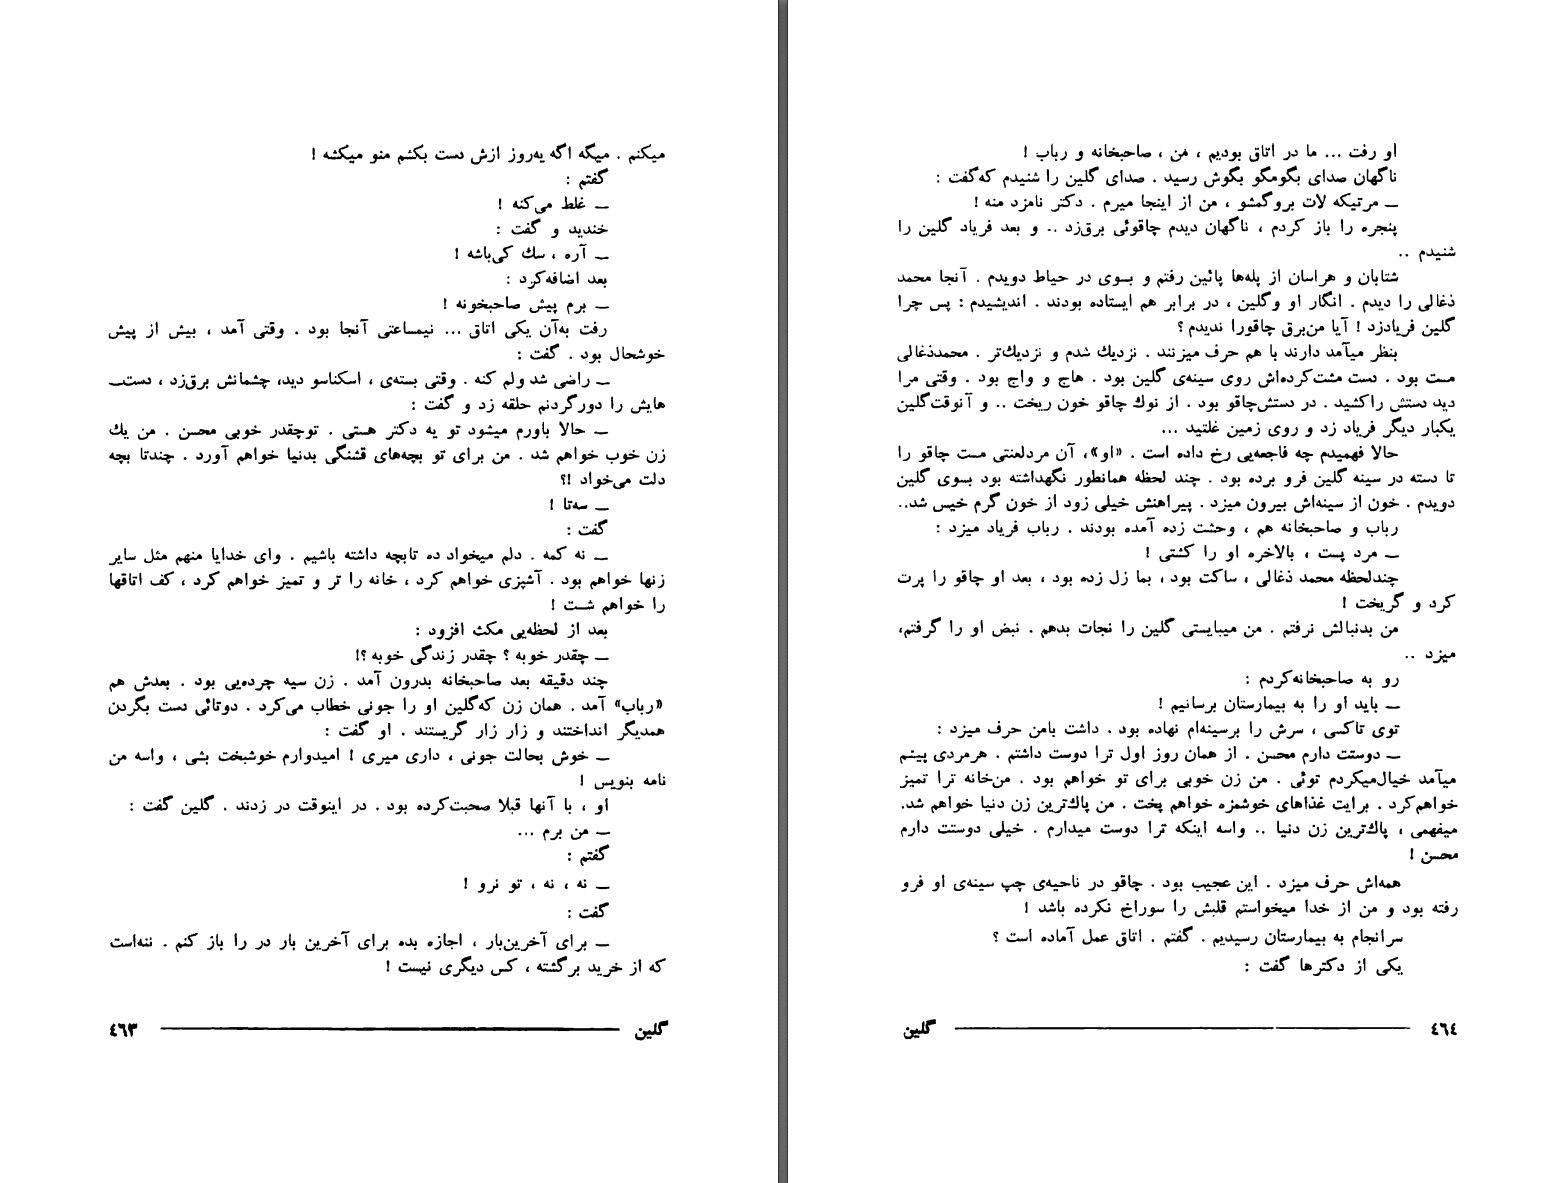 میکنم . میگه اگه یه‌روز ازش دست بکشم منو میکشه !
گفتم :
ــ غلط می‌کنه !
خندید و گفت :
ــ آره ، سك کی‌باشه !
بعد اضافه‌کرد :
ــ برم پیش صاحبخونه !
رفت به‌آن یکی اتاق ... نیمساعتی آنجا بود . وقتی آمد ، بیش از پیش
خوشحال بود . گفت :
ــ راضی شد ولم کنه . وقتی بسته‌ی ، اسکناسو دید، چشمانش برق‌زد ، دست‌ــ
هایش را دورگردنم حلقه زد و گفت :
ــ حالا باورم میشود تو یه دکتر هستی . توچقدر خوبی محسن . من یك
زن خوب خواهم شد . من برای تو بچه‌های قشنگی بدنیا خواهم آورد . چندتا بچه
دلت می‌خواد !؟
ــ سه‌تا !
گفت :
ــ نه کمه . دلم میخواد ده تابچه داشته باشیم . وای خدایا منهم مثل سایر
زنها خواهم بود . آشپزی خواهم کرد ، خانه را تر و تمیز خواهم کرد ، کف اتاقها
را خواهم شست !
بعد از لحظه‌یی مکث افزود :
ــ چقدر خوبه ؟ چقدر زندگی خوبه ؟!
چند دقیقه بعد صاحبخانه بدرون آمد . زن سیه چرده‌یی بود . بعدش هم
«رباب» آمد . همان زن که‌گلین او را جونی خطاب می‌کرد . دوتائی دست بگردن
همدیگر انداختند و زار زار گریستند . او گفت :
ــ خوش بحالت جونی ، داری میری ! امیدوارم خوشبخت بشی ، واسه من
نامه بنویس !
او ، با آنها قبلا صحبت‌کرده بود . در اینوقت در زدند . گلین گفت :
ــ من برم ...
گفتم :
ــ نه ، نه ، تو نرو !
گفت :
ــ برای آخرین‌بار ، اجازه بده برای آخرین بار در را باز کنم . ننه‌است
که از خرید برگشته ، کس دیگری نیست !
گلین ٤٦٣
او رفت ... ما در اتاق بودیم ، من ، صاحبخانه و رباب !
ناگهان صدای بگومگو بگوش رسید . صدای گلین را شنیدم که‌گفت :
ــ مرتیکه لات بروگمشو ، من از اینجا میرم . دکتر نامزد منه !
پنجره را باز کردم ، ناگهان دیدم چاقوئی برق‌زد .. و بعد فریاد گلین را
شنیدم ..
شتابان و هراسان از پله‌ها پائین رفتم و بسوی در حیاط دویدم . آنجا محمد
ذغالی را دیدم . انگار او وگلین ، در برابر هم ایستاده بودند . اندیشیدم : پس چرا
گلین فریادزد ! آیا من‌برق چاقورا ندیدم ؟
بنظر میآمد دارند با هم حرف میزنند . نزدیك شدم و نزدیك‌تر . محمدذغالی
مست بود . دست مشت‌کرده‌اش روی سینه‌ی گلین بود . هاج و واج بود . وقتی مرا
دید دستش راکشید . در دستش‌چاقو بود . از نوك چاقو خون ریخت .. و آنوقت‌گلین
یکبار دیگر فریاد زد و روی زمین غلتید ...
حالا فهمیدم چه فاجعه‌یی رخ داده است . «او»، آن مردلعنتی مست چاقو را
تا دسته در سینه گلین فرو برده بود . چند لحظه همانطور نگهداشته بود بسوی گلین
دویدم . خون از سینه‌اش بیرون میزد . پیراهنش خیلی زود از خون گرم خیس شد..
رباب و صاحبخانه هم ، وحشت زده آمده بودند . رباب فریاد میزد :
ــ مرد پست ، بالاخره او را کشتی !
چندلحظه محمد ذغالی ، ساکت بود ، بما زل زده بود ، بعد او چاقو را پرت
کرد و گریخت !
من بدنبالش نرفتم . من میبایستی گلین را نجات بدهم . نبض او را گرفتم،
میزد ..
رو به صاحبخانه‌کردم :
ــ باید او را به بیمارستان برسانیم !
توی تاکسی ، سرش را برسینه‌ام نهاده بود . داشت بامن حرف میزد :
ــ دوستت دارم محسن . از همان روز اول ترا دوست داشتم . هرمردی پیشم
میآمد خیال‌میکردم توئی . من زن خوبی برای تو خواهم بود . من‌خانه ترا تمیز
خواهم‌کرد . برایت غذاهای خوشمزه خواهم پخت . من پاك‌ترین زن دنیا خواهم شد.
میفهمی ، پاك‌ترین زن دنیا .. واسه اینکه ترا دوست میدارم . خیلی دوستت دارم
محسن !
همه‌اش حرف میزد . این عجیب بود . چاقو در ناحیه‌ی چپ سینه‌ی او فرو
رفته بود و من از خدا میخواستم قلبش را سوراخ نکرده باشد !
سرانجام به بیمارستان رسیدیم . گفتم . اتاق عمل آماده است ؟
یکی از دکترها گفت :
٤٦٤ گلین